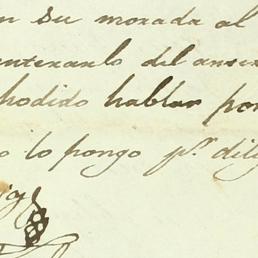 n su morada al
enterarlo del anter
podido hablar por
o lo pongo p.r dilig